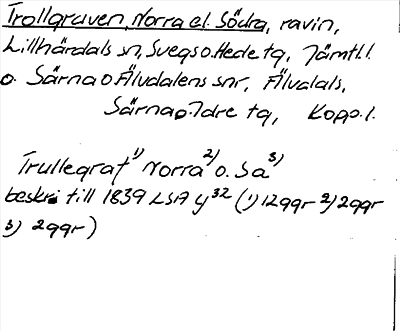 Trollgraven, Norra el. Södra, ravin,
Lillhärdals sn, Svegs o. Hede tg, Jämtl. l.
o. Särna o Älvdalens snr, Älvdals,
Särna o. Idre tg, Kopp. l.
Trullegraf 1) Norra 2) o. Sa 3)
beskr till 1839 LSA y32 (1) 12ggr 2) 2ggr
3) 2ggr)